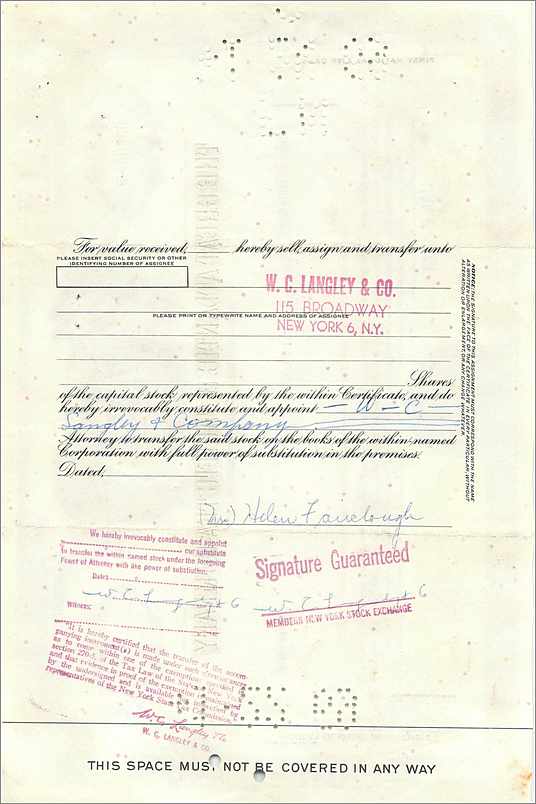 For value received, hereby sell, assign and transfer unto
PLEASE INSERT SOCIAL SECURITY OR OTHER
IDENTIFYING NUMBER OF ASSIGNEE
W. C. LANGLEY & CO.
115 BROADWAY
PLEASE PRINT OR TYPEWRITE NAME AND ADDRESS OF ASSIGNEE
NEW YORK 6, N.Y.
Shares
of the capital stock represented by the within Certificate, and do
hereby irrevocably constitute and appoint — W — C —
Langley & Company
Attorney to transfer the said stock on the books of the within named
Corporation with full power of substitution in the premises.
Dated,
NOTICE: THE SIGNATURE TO THIS ASSIGNMENT MUST CORRESPOND WITH THE NAME
AS WRITTEN UPON THE FACE OF THE CERTIFICATE IN EVERY PARTICULAR, WITHOUT
ALTERATION OR ENLARGEMENT OR ANY CHANGE WHATEVER.
Helen
We hereby irrevocably constitute and appoint
our substitute
to transfer the within named stock under the foregoing
Power of Attorney with like power of substitution.
Dated
WITNESS:
Signature Guaranteed
MEMBERS NEW YORK STOCK EXCHANGE
"It is hereby certified that the transfer of the accompanying
instrument(s) is made under such circumstances
as to come within one of the exemptions
section 270-5, of the Tax Law of the State of New York
and that evidence in proof of the exemption
by the undersigned and is available for inspection by
representatives of the New York State Tax Commission."
W. C. Langley & Co
W. C. LANGLEY & CO.
THIS SPACE MUST NOT BE COVERED IN ANY WAY